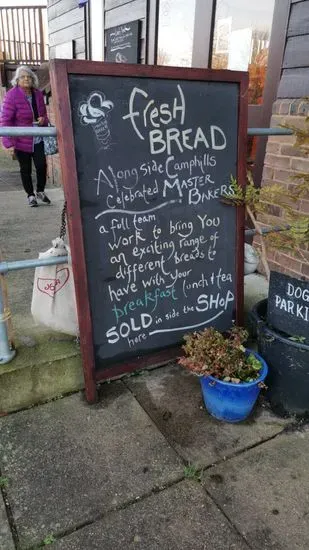 fresh
BREAD
Alongside Camphills
Celebrated MASTER
BAKERS
a full team
work to bring You
an exciting range of
different breads to
have with your
breakfast lunch & tea
SOLD in side the SHOP
here
DOG
PARKI